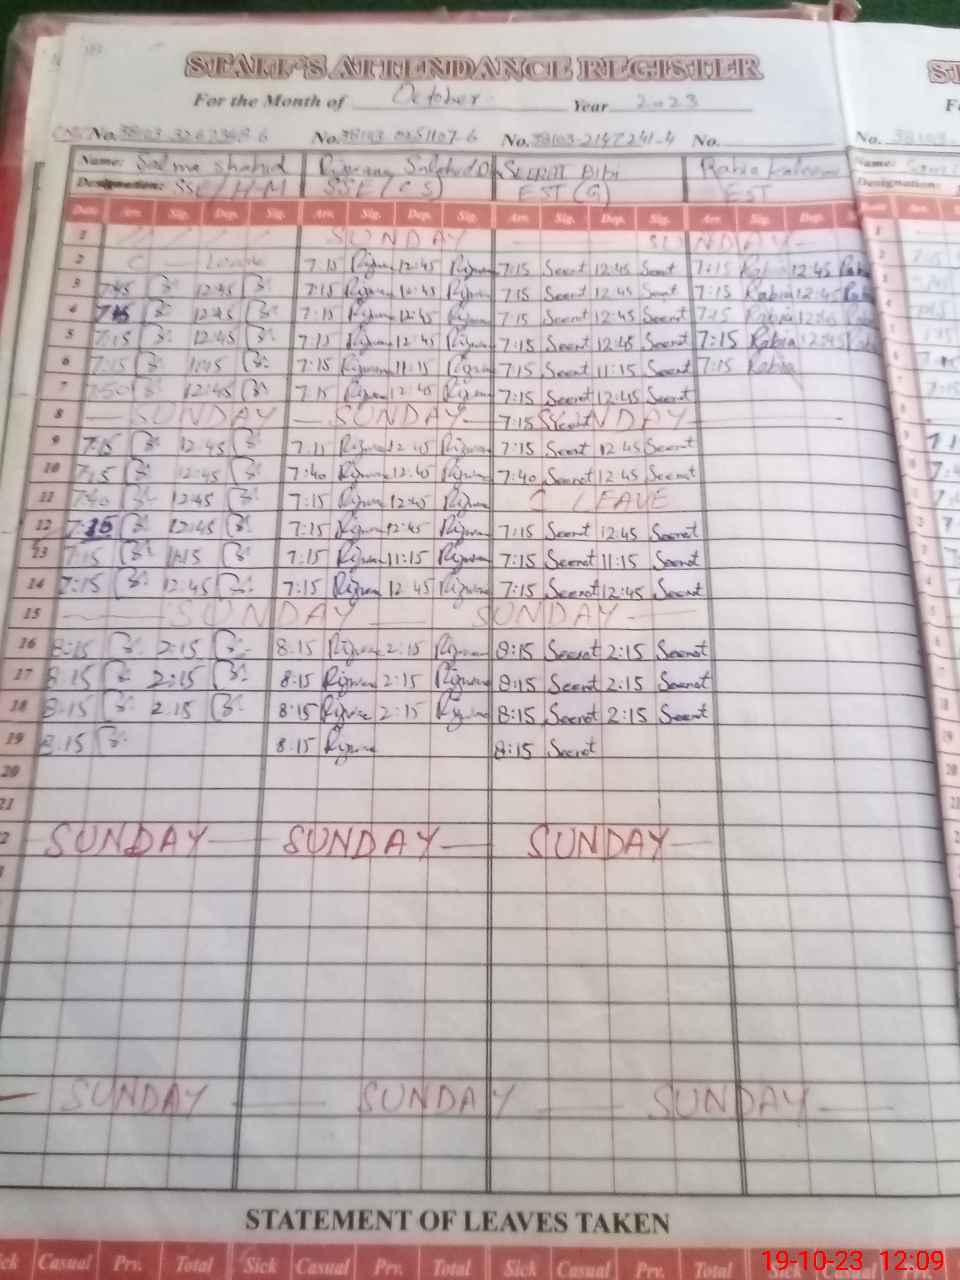 STAFF'S ATTENDANCE REGISTER
For the Month of October Year 2023
No. 38103-3262368-6 No. 38103-0251107-6 No. 38103-2147241-4 No. No.
Name: Salma Shahid Rizwana SEERAT BIBI Rabia Kaleem Name:
Designation: SSE/H.M SSE (CS) EST (G) EST Designation:
Date Arr. Sig. Dep. Sig. Arr. Sig. Dep. Sig. Arr. Sig. Dep. Sig. Arr. Sig. Dep.
1 SUNDAY SUNDAY 1
2 C Leave 7:15 Rizwana 12:45 Rizwana 7:15 Seerat 12:45 Seerat 7:15 Rabia 12:45 Rabia
3 7:45 12:45 7:15 Rizwana 12:45 Rizwana 7:15 Seerat 12:45 Seerat 7:15 Rabia 12:45 Rabia
4 7:15 12:45 7:15 Rizwana 12:45 Rizwana 7:15 Seerat 12:45 Seerat 7:15 Rabia 12:45 Rabia
5 7:15 12:45 7:15 Rizwana 12:45 Rizwana 7:15 Seerat 12:45 Seerat 7:15 Rabia 12:45 Rabia
6 7:15 11:15 7:15 Rizwana 11:15 Rizwana 7:15 Seerat 11:15 Seerat 7:15 Rabia
7 7:50 12:45 7:15 Rizwana 12:45 Rizwana 7:15 Seerat 12:45 Seerat
8 SUNDAY SUNDAY 7:15 Seerat SUNDAY
9 7:15 12:45 7:15 Rizwana 12:45 Rizwana 7:15 Seerat 12:45 Seerat
10 7:45 12:45 7:40 Rizwana 12:40 Rizwana 7:40 Seerat 12:45 Seerat
11 7:40 12:45 7:15 Rizwana 12:45 Rizwana C LEAVE
12 7:15 12:45 7:15 Rizwana 12:45 Rizwana 7:15 Seerat 12:45 Seerat
13 7:15 11:15 7:15 Rizwana 11:15 Rizwana 7:15 Seerat 11:15 Seerat
14 7:15 12:45 7:15 Rizwana 12:45 Rizwana 7:15 Seerat 12:45 Seerat
15 SUNDAY SUNDAY
16 8:15 2:15 8:15 Rizwana 2:15 Rizwana 8:15 Seerat 2:15 Seerat
17 8:15 2:15 8:15 Rizwana 2:15 Rizwana 8:15 Seerat 2:15 Seerat
18 8:15 2:15 8:15 Rizwana 2:15 Rizwana 8:15 Seerat 2:15 Seerat
19 8:15 8:15 Rizwana 8:15 Seerat
20
21
SUNDAY SUNDAY SUNDAY
SUNDAY SUNDAY SUNDAY
STATEMENT OF LEAVES TAKEN
Casual Prv. Total Sick Casual Prv. Total Sick Casual Prv. Total Sick
19-10-23 12:09